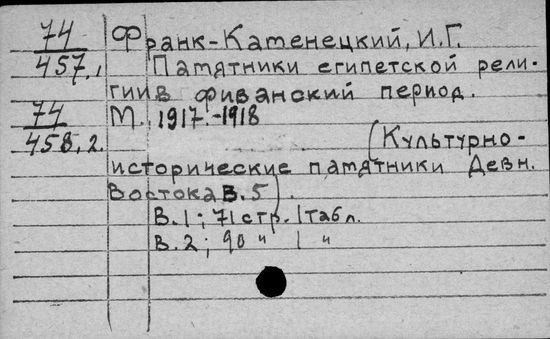 74
457,1
74
458,2.
Франк-Катенецкий, И.Г.
Памятники египетской рели-
гии в фиванский период.
М., 1917.-1918
(Культурно-
исторические памятники Девн.
Востока В. 5).
В.1; 71 стр. 1 табл.
В.2; 90 " 1 "